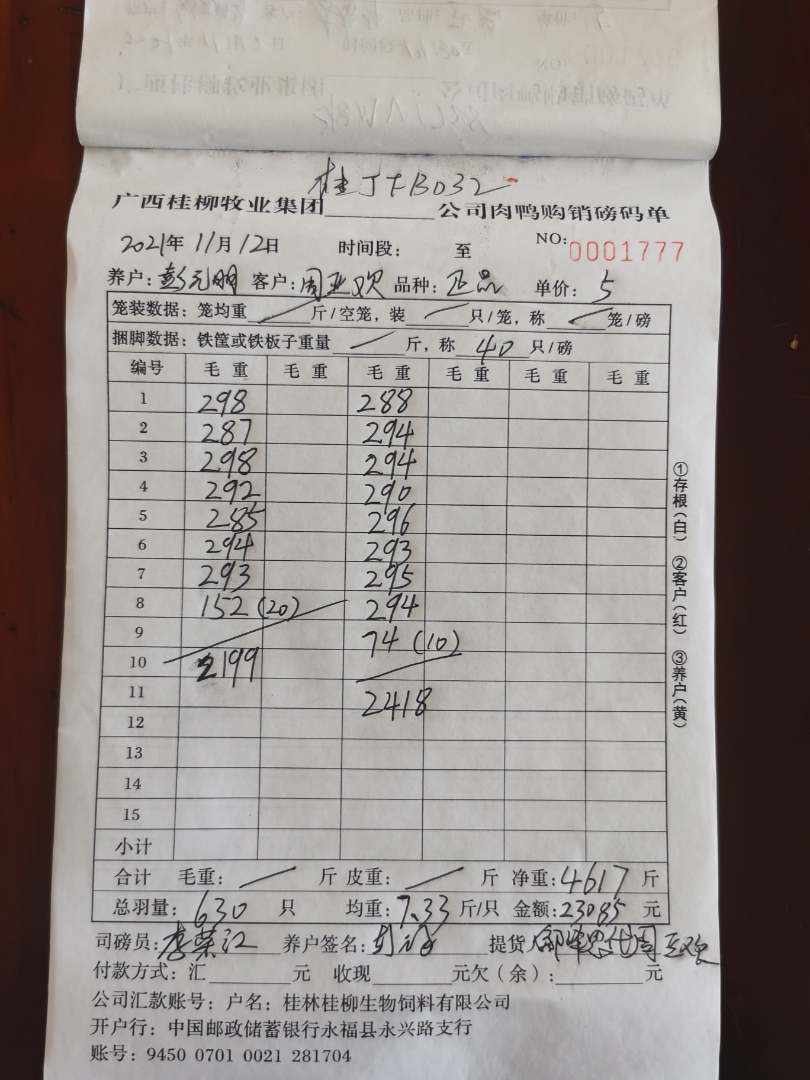 桂JFB032
广西桂柳牧业集团________公司肉鸭购销磅码单
2021年 11月 12日 时间段: 至 NO: 0001777
养户: 彭元明 客户: 周亚欢 品种: 正品 单价: 5
笼装数据: 笼均重 / 斤/空笼, 装 / 只/笼, 称 / 笼/磅
捆脚数据: 铁筐或铁板子重量 / 斤, 称 40 只/磅
编号 毛重 毛重 毛重 毛重 毛重 毛重
1 298 288
2 287 294
3 298 294
4 292 290
5 285 296
6 294 293
7 293 295
8 152(20) 294
9 74(10)
10 2199
11 2418
12
13
14
15
小计
合计 毛重: / 斤 皮重: / 斤 净重: 4617 斤
总羽量: 630 只 均重: 7.33 斤/只 金额: 23085 元
司磅员: 李荣江 养户签名: 提货人 代周亚欢
付款方式: 汇________元 收现________元欠(余): ________元
公司汇款账号: 户名: 桂林桂柳生物饲料有限公司
开户行: 中国邮政储蓄银行永福县永兴路支行
账号: 9450 0701 0021 281704
①存根(白) ②客户(红) ③养户(黄)